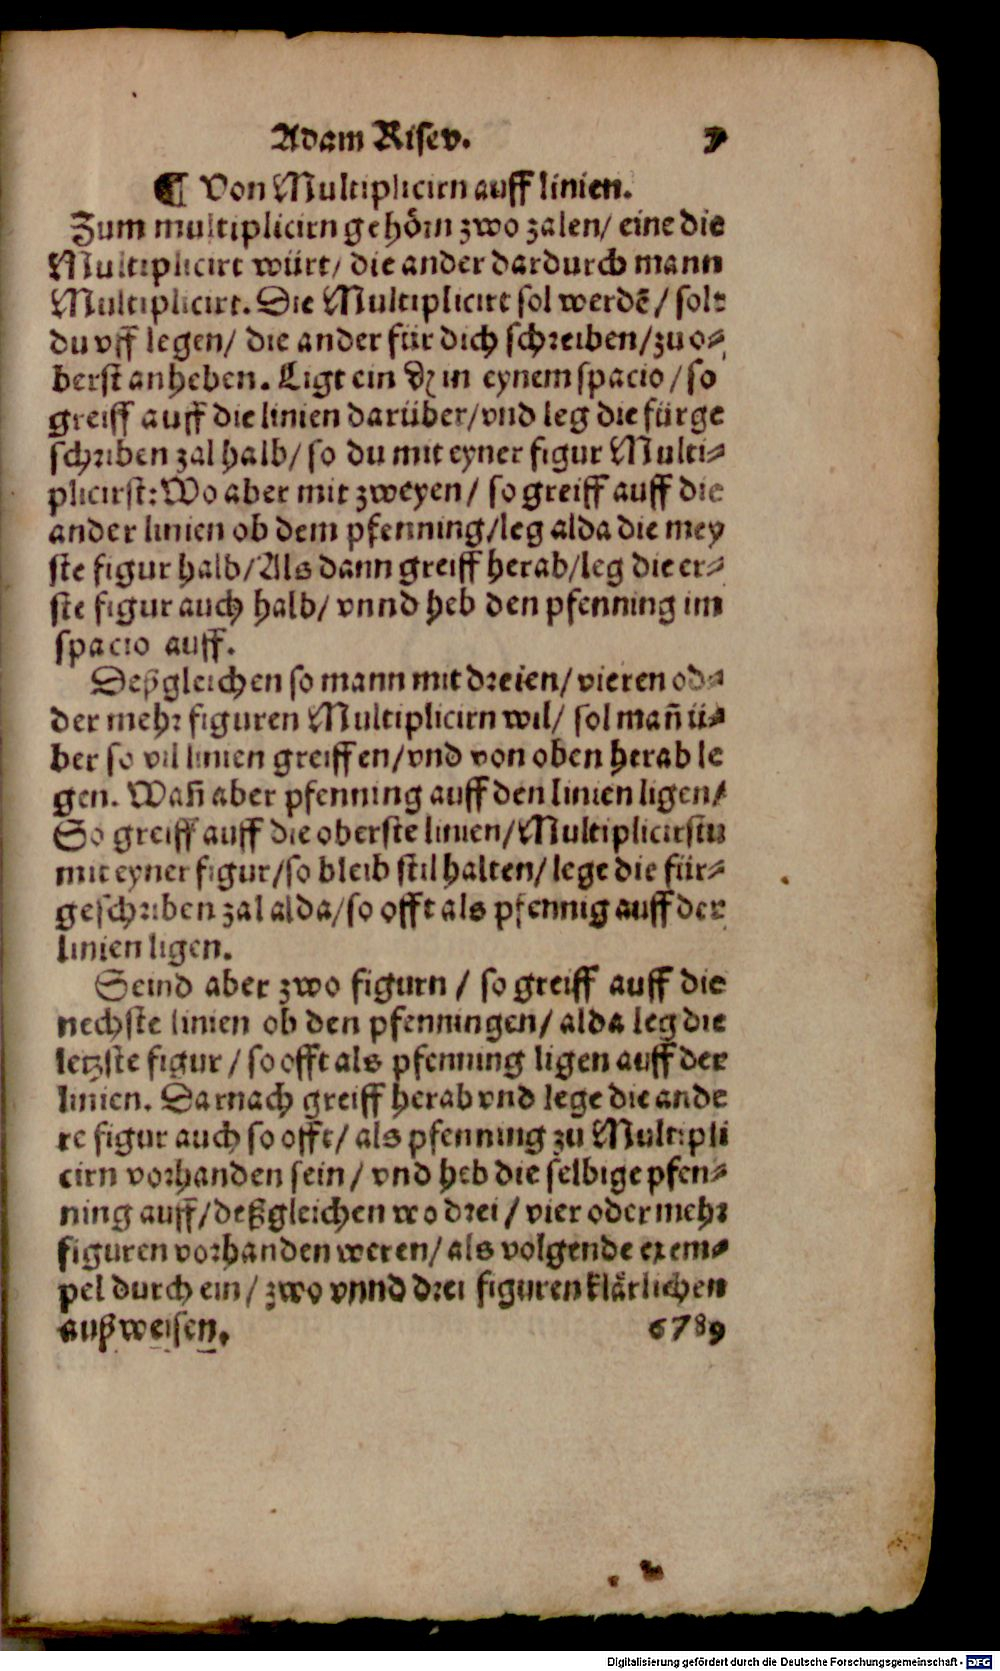 Adam Risen. 7
¶ Von Multiplicirn auff linien.
Zum multiplicirn gehörn zwo zalen/ eine die
Multiplicirt würt/ die ander dardurch mann
Multiplicirt. Die Multiplicirt sol werdē/ solt
du vff legen/ die ander für dich schreiben/ zu o⸗
berst anheben. Ligt ein ₰ in eynem spacio/ so
greiff auff die linien darüber/ vnd leg die fürge
schriben zal halb/ so du mit eyner figur Multi⸗
plicirst: Wo aber mit zweyen/ so greiff auff die
ander linien ob dem pfenning/ leg alda die mey
ste figur halb/ Als dann greiff herab/ leg die er⸗
ste figur auch halb/ vnnd heb den pfenning im
spacio auff.
Deßgleichen so mann mit dreien/ vieren od⸗
der mehr figuren Multiplicirn wil/ sol mañ ü⸗
ber so vil linien greiffen/ vnd von oben herab le
gen. Wañ aber pfenning auff den linien ligen/
So greiff auff die oberste linien/ Multiplicirstu
mit eyner figur/ so bleib stil halten/ lege die für⸗
geschriben zal alda/ so offt als pfennig auff der
linien ligen.
Seind aber zwo figurn / so greiff auff die
nechste linien ob den pfenningen/ alda leg die
letzste figur / so offt als pfenning ligen auff der
linien. Darnach greiff herab vnd lege die ande
re figur auch so offt/ als pfenning zu Multipli
cirn vorhanden sein / vnd heb die selbige pfen⸗
ning auff/ deßgleichen wo drei / vier oder mehr
figuren vorhanden weren/ als volgende exem⸗
pel durch ein / zwo vnnd drei figuren klärlichen
außweisen. 6789
Digitalisierung gefördert durch die Deutsche Forschungsgemeinschaft - DFG